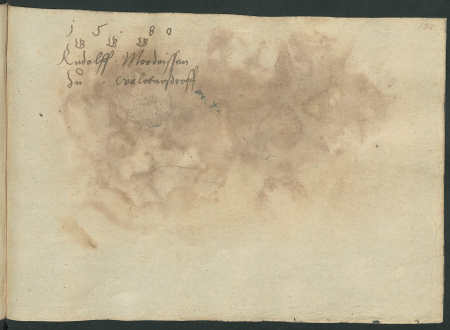 1 5 · 8 0
W W W
Rudolff Mordeissen
Zu Waltersdorff
132.